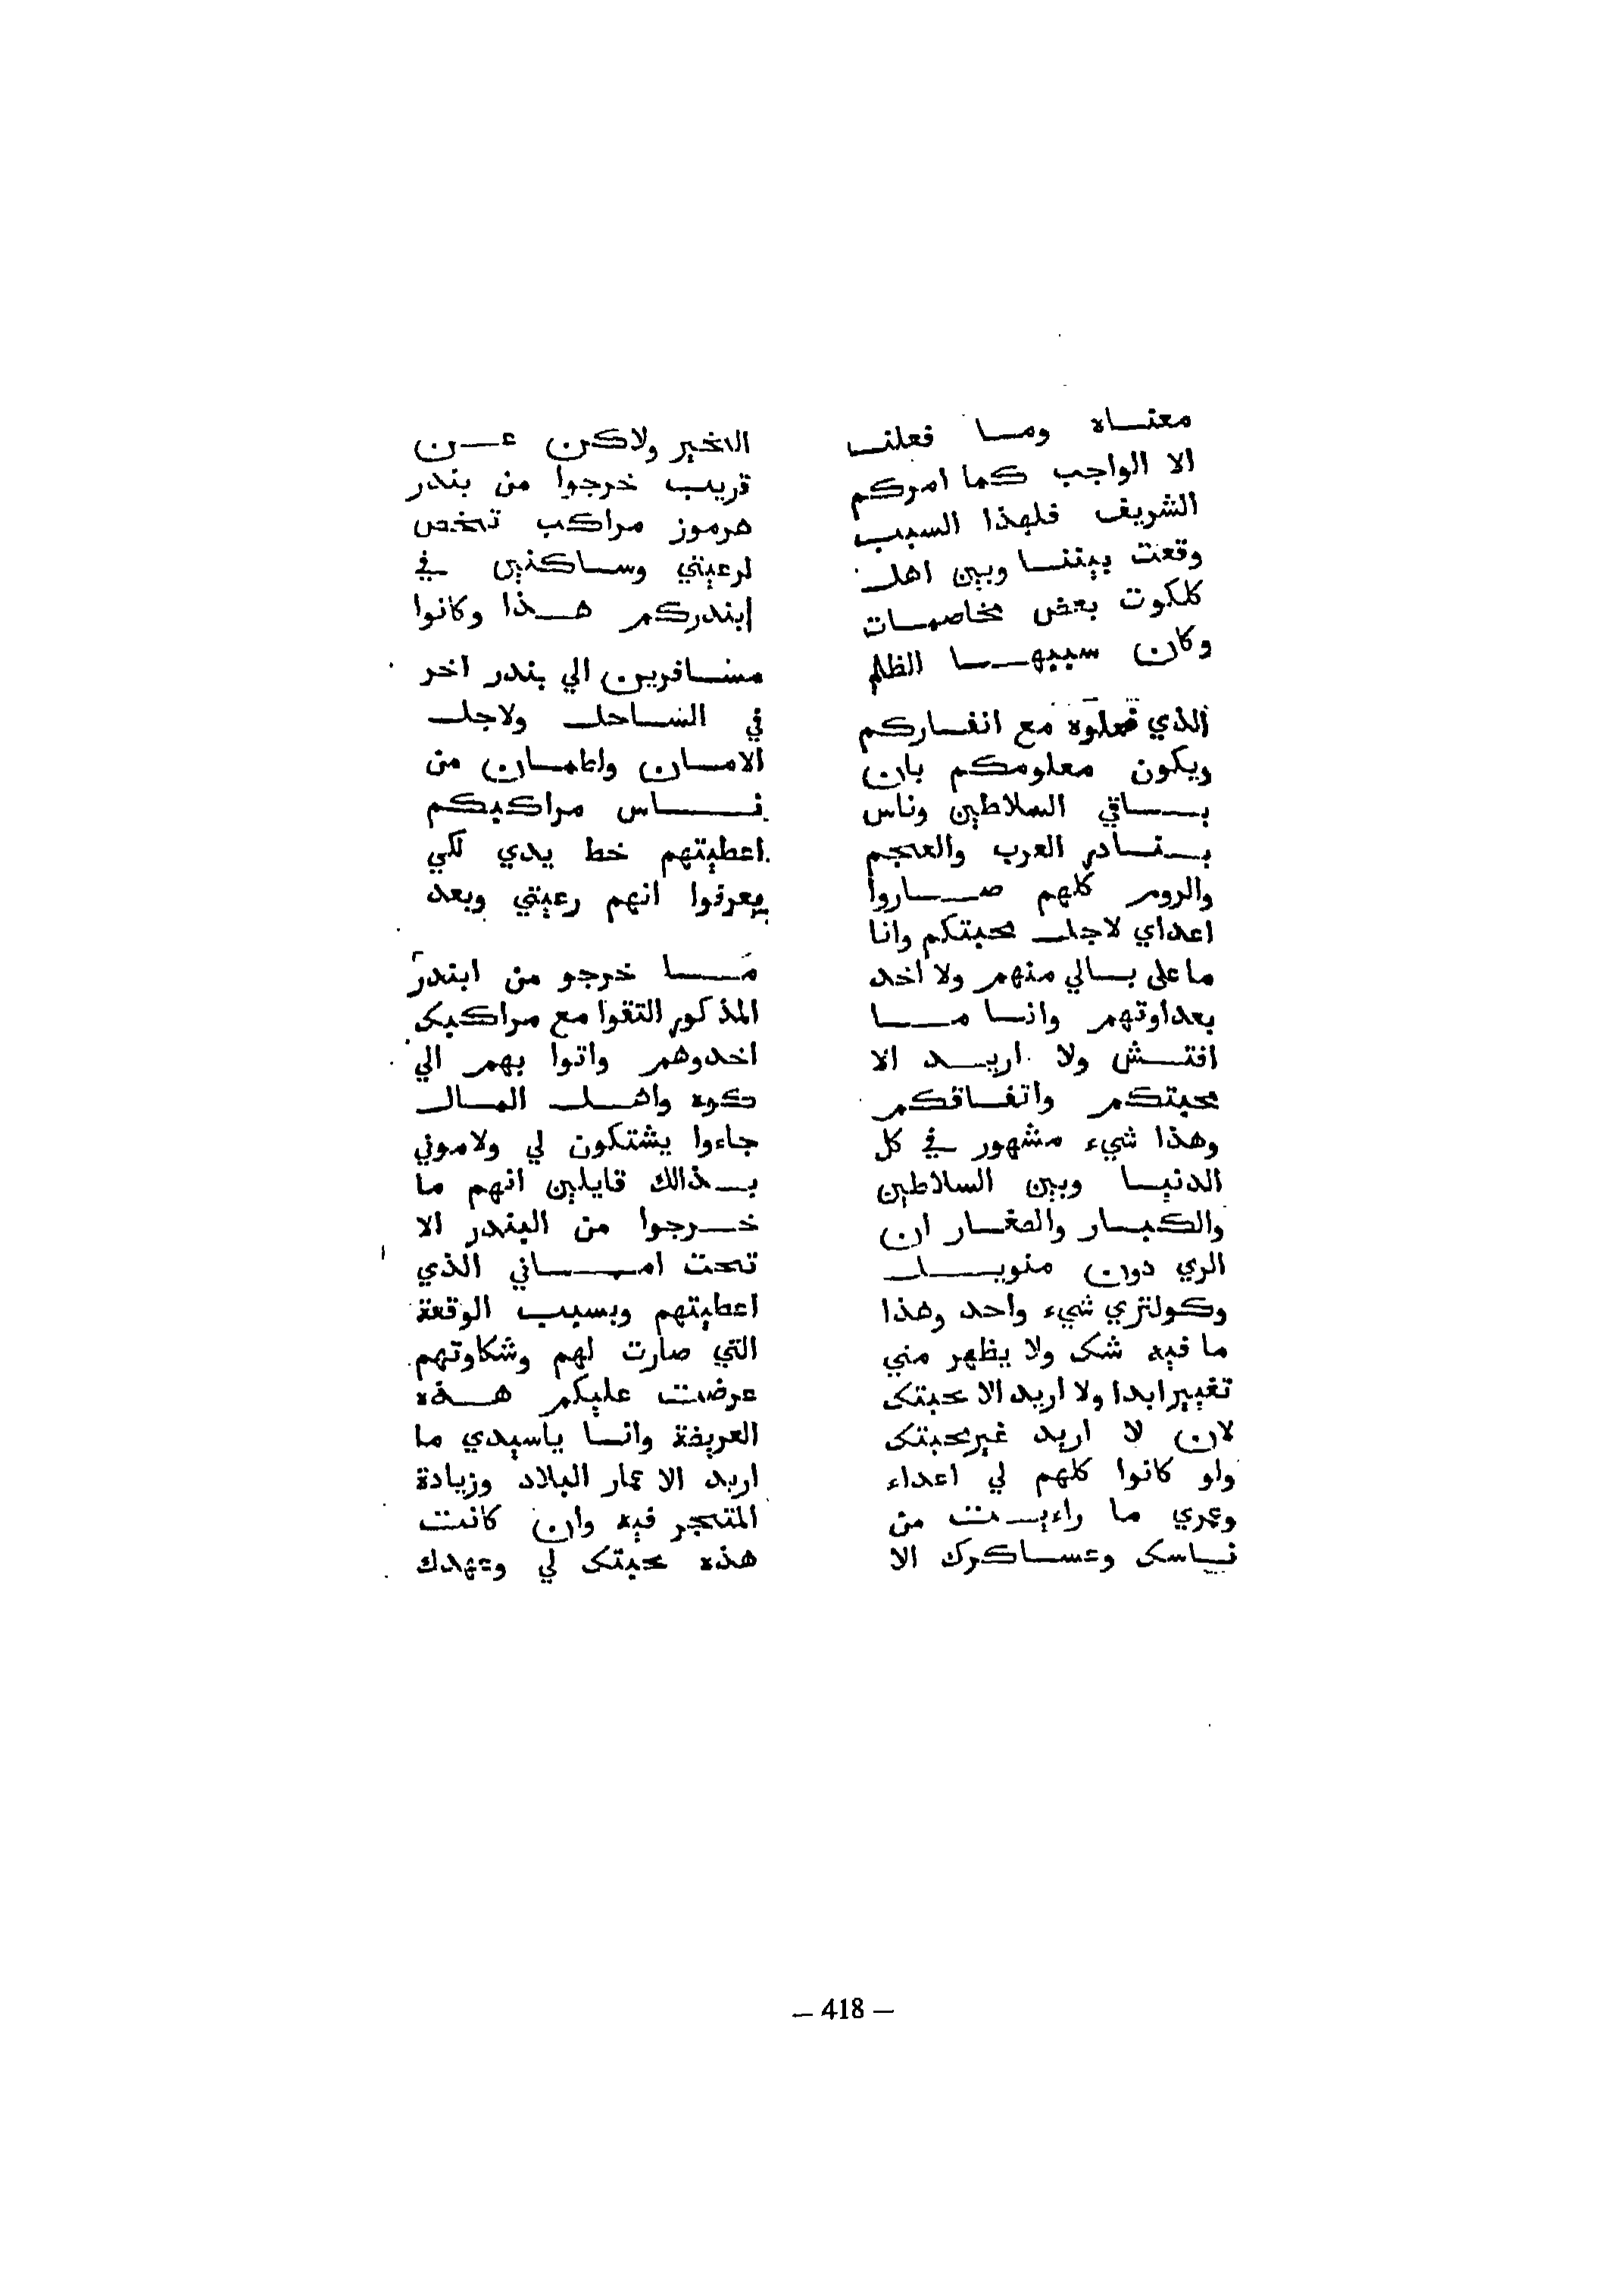 معنــاه ومــا فعلنــا
الا الواجب كما امركم
الشريف فلهذا السبب
وقعت بيننــا وبين اهل
كلكوت بعض مخاصمــات
وكان سببهــا الظلم
الذي فعلوه مع انفــاركم
ويكون معلومكم بان
بــاقي السلاطين وناس
بــنــادر العرب والعجم
والروم كلهم صــاروا
اعداي لاجل محبتكم وانا
ما على بــالي منهم ولا اخد
بعداوتهم وانــا مــا
افتــش ولا اريــد الا
محبتكم واتفــاقكم
وهذا شيء مشهور في كل
الدنيــا وبين السلاطين
والكبــار والصغــار ان
الري دون منويــل
وكولتري شيء واحد وهذا
ما فيه شك ولا يظهر مني
تغيير ابدا ولا اريد الا محبتك
لان لا اريد غير محبتك
ولو كانوا كلهم لي اعداء
وعمري ما راءيــت من
نــاسك وعســاكرك الا
الخير ولاكن عــن
قريب خرجوا من بندر
هرموز مراكب تخص
لرعيتي وســاكنين في
ابندركم هــذا وكانوا
مســافرين الي بندر اخر
في الســاحل ولاجل
الامــان واطمــان من
نــاس مراكبكم
اعطيتهم خط يدي لكي
يعرفوا انهم رعيتي وبعد
مــا خرجو من ابندر
المذكور التقوا مع مراكبك
اخدوهم واتوا بهم الي
كوه واهــل المــال
جاءوا يشتكون لي ولاموني
بــذالك قايلين انهم ما
خــرجوا من البندر الا
تحت امــاني الذي
اعطيتهم وبسبب الوقعة
التي صارت لهم وشكاوتهم
عرضت عليكم هــذه
العريضة وانــا ياسيدي ما
اريد الا عمار البلاد وزيادة
المتجر فيه وان كانت
هذه محبتك لي وعهدك
— 418 —